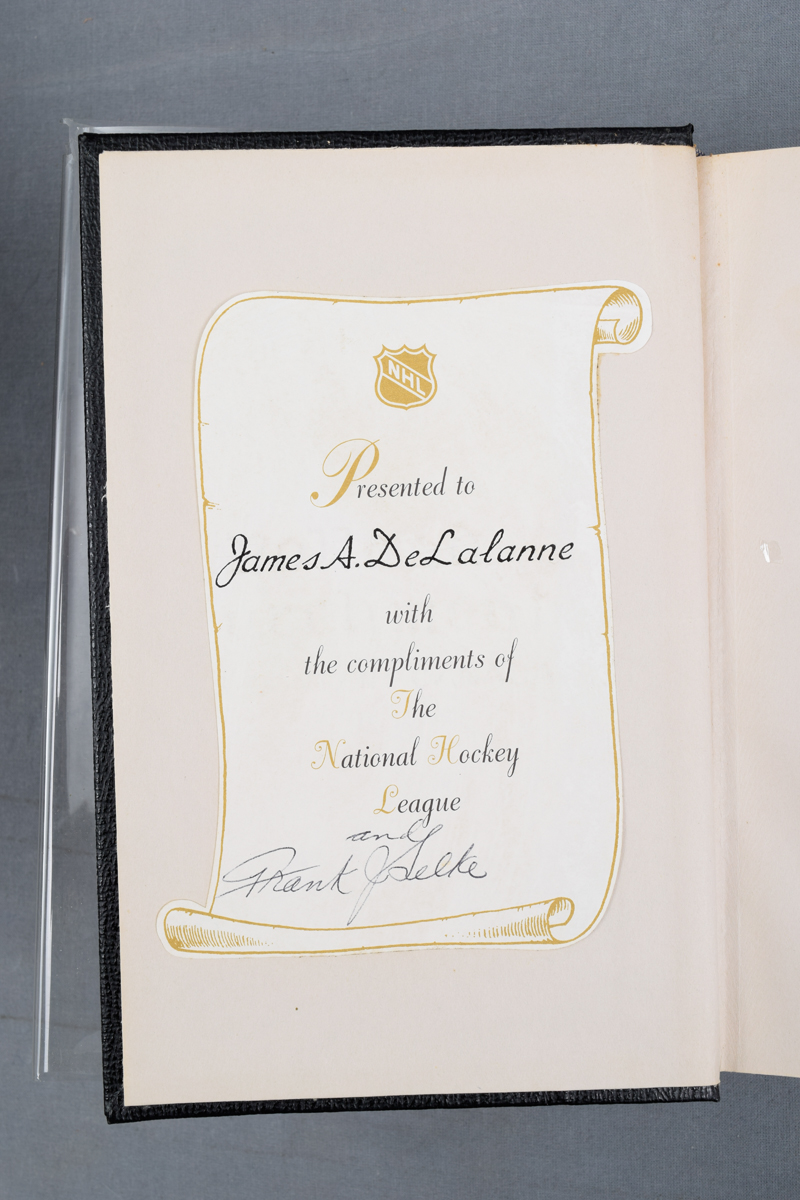 NHL
Presented to
James A. DeLalanne
with
the compliments of
The
National Hockey
League
and
Frank J Selke